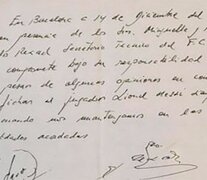 En Barcelona a 14 de diciembre del
en presencia de los Srs. Minguella y
to Rexach Secretario Técnico del F.C.
compromete bajo su responsabilidad
pesar de algunas opiniones en con
fichar al jugador Lionel Messi
mando nos mantengamos en las
tidades acordadas